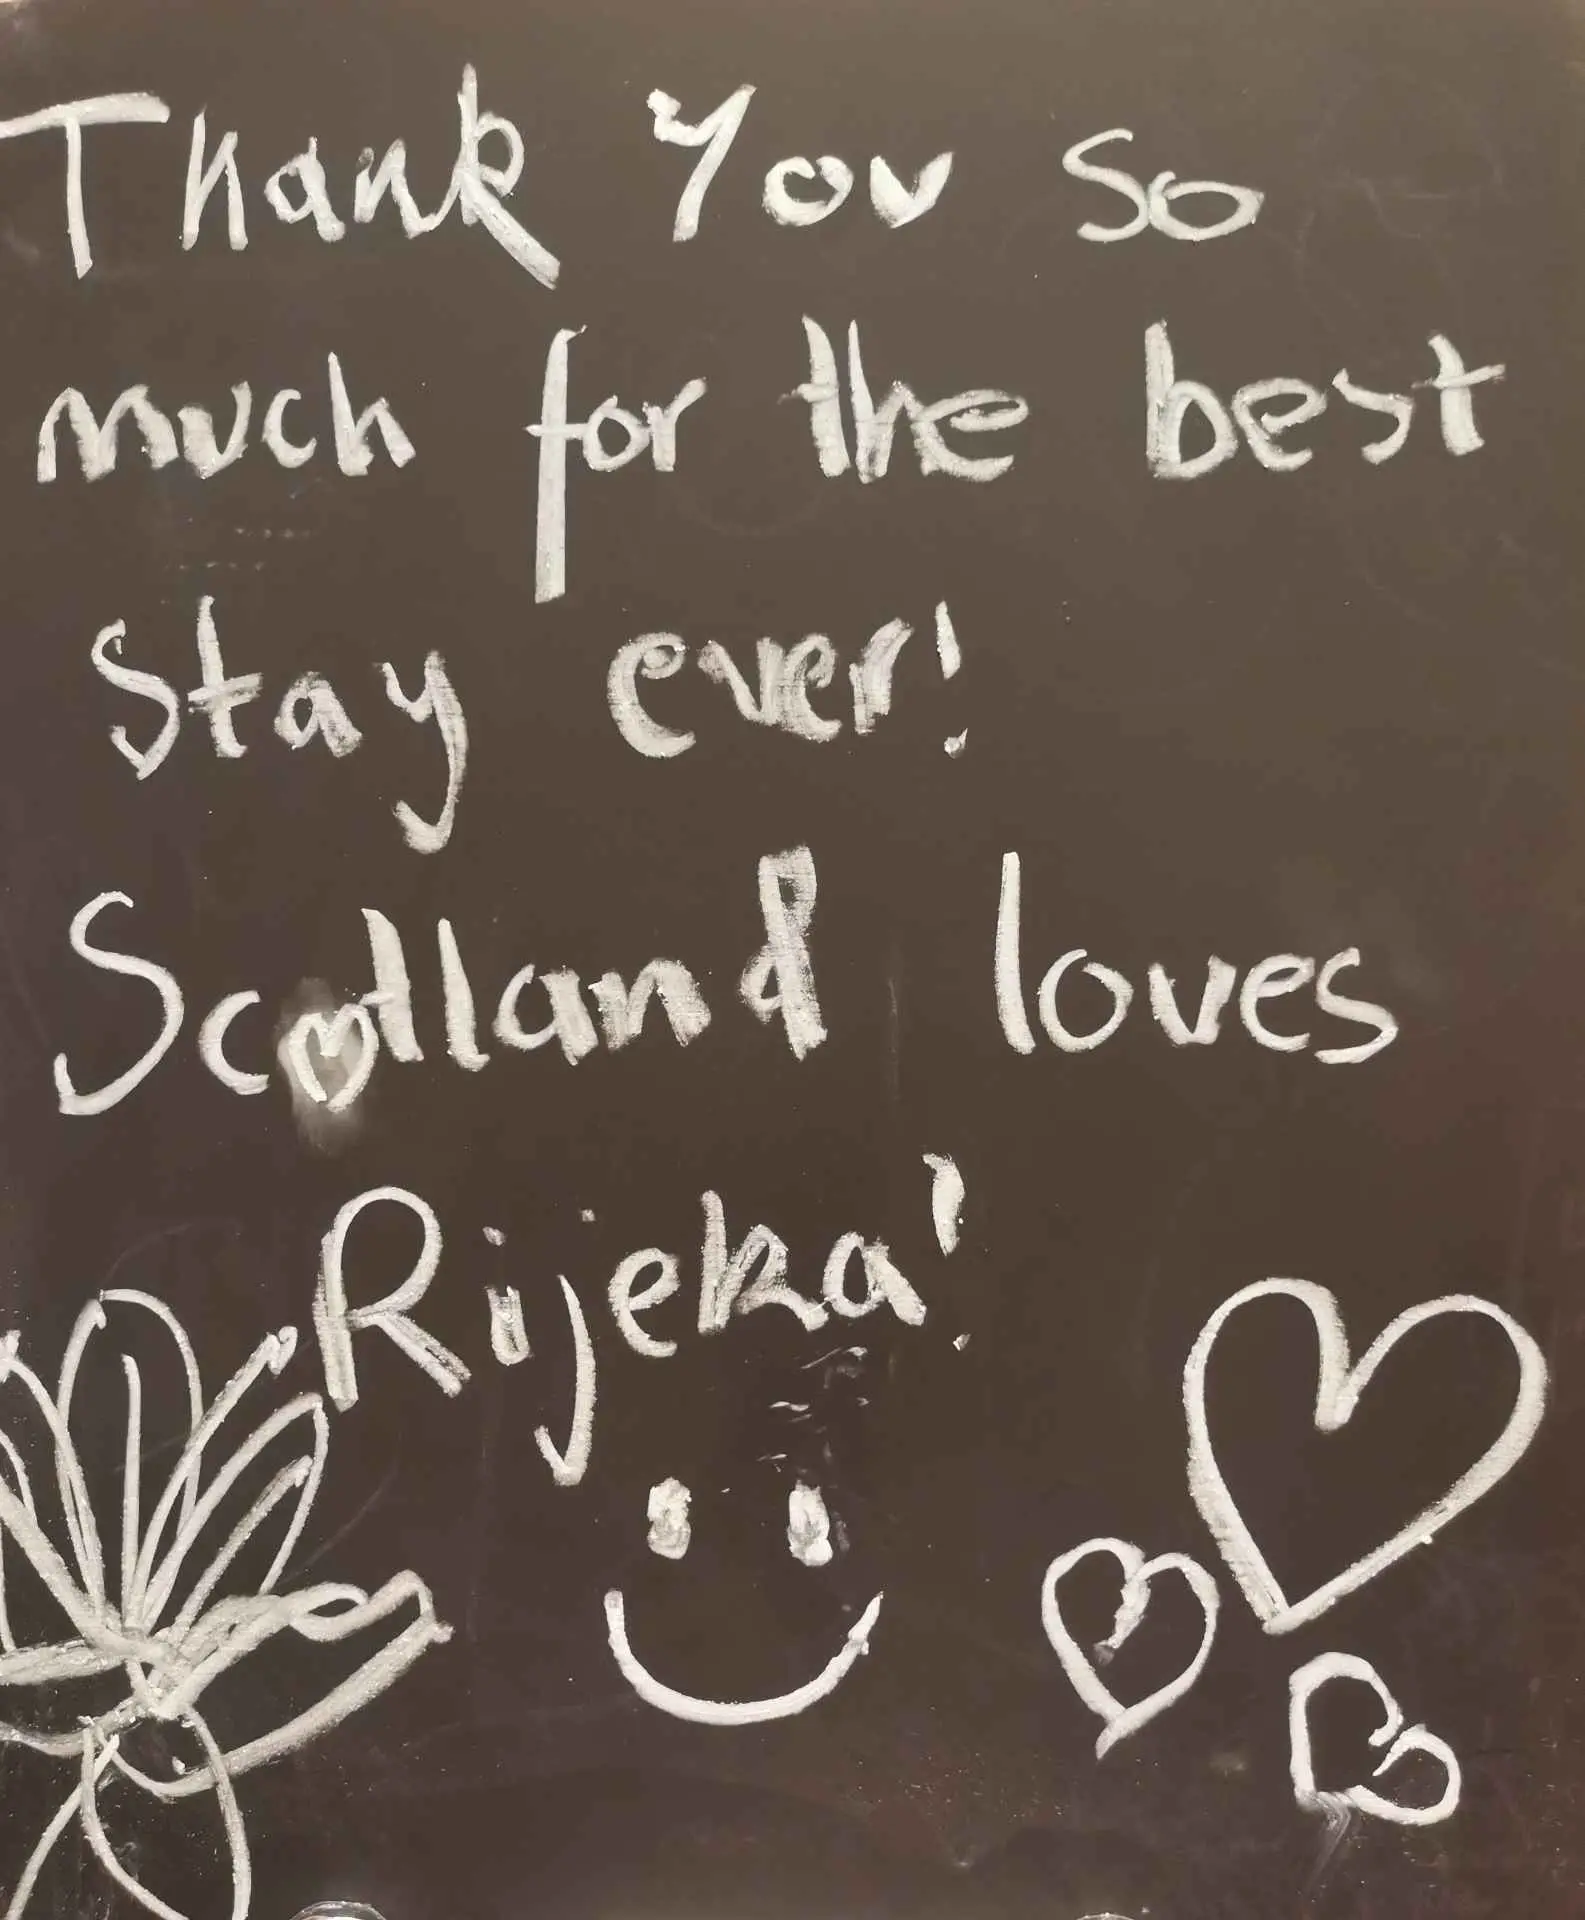 Thank You so
much for the best
stay ever!
Scotland loves
Rijeka!